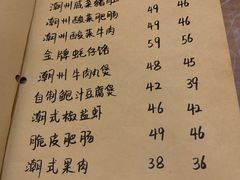 潮州咸菜猪肚
潮州酸菜肥肠 49 46
潮州酸菜牛肉 49 46
金牌蚝仔饹 59 56
潮州牛肉丸煲 48 45
自制鲍汁豆腐煲 42 39
潮式椒盐虾 46 42
脆皮肥肠 49 46
潮式果肉 38 36